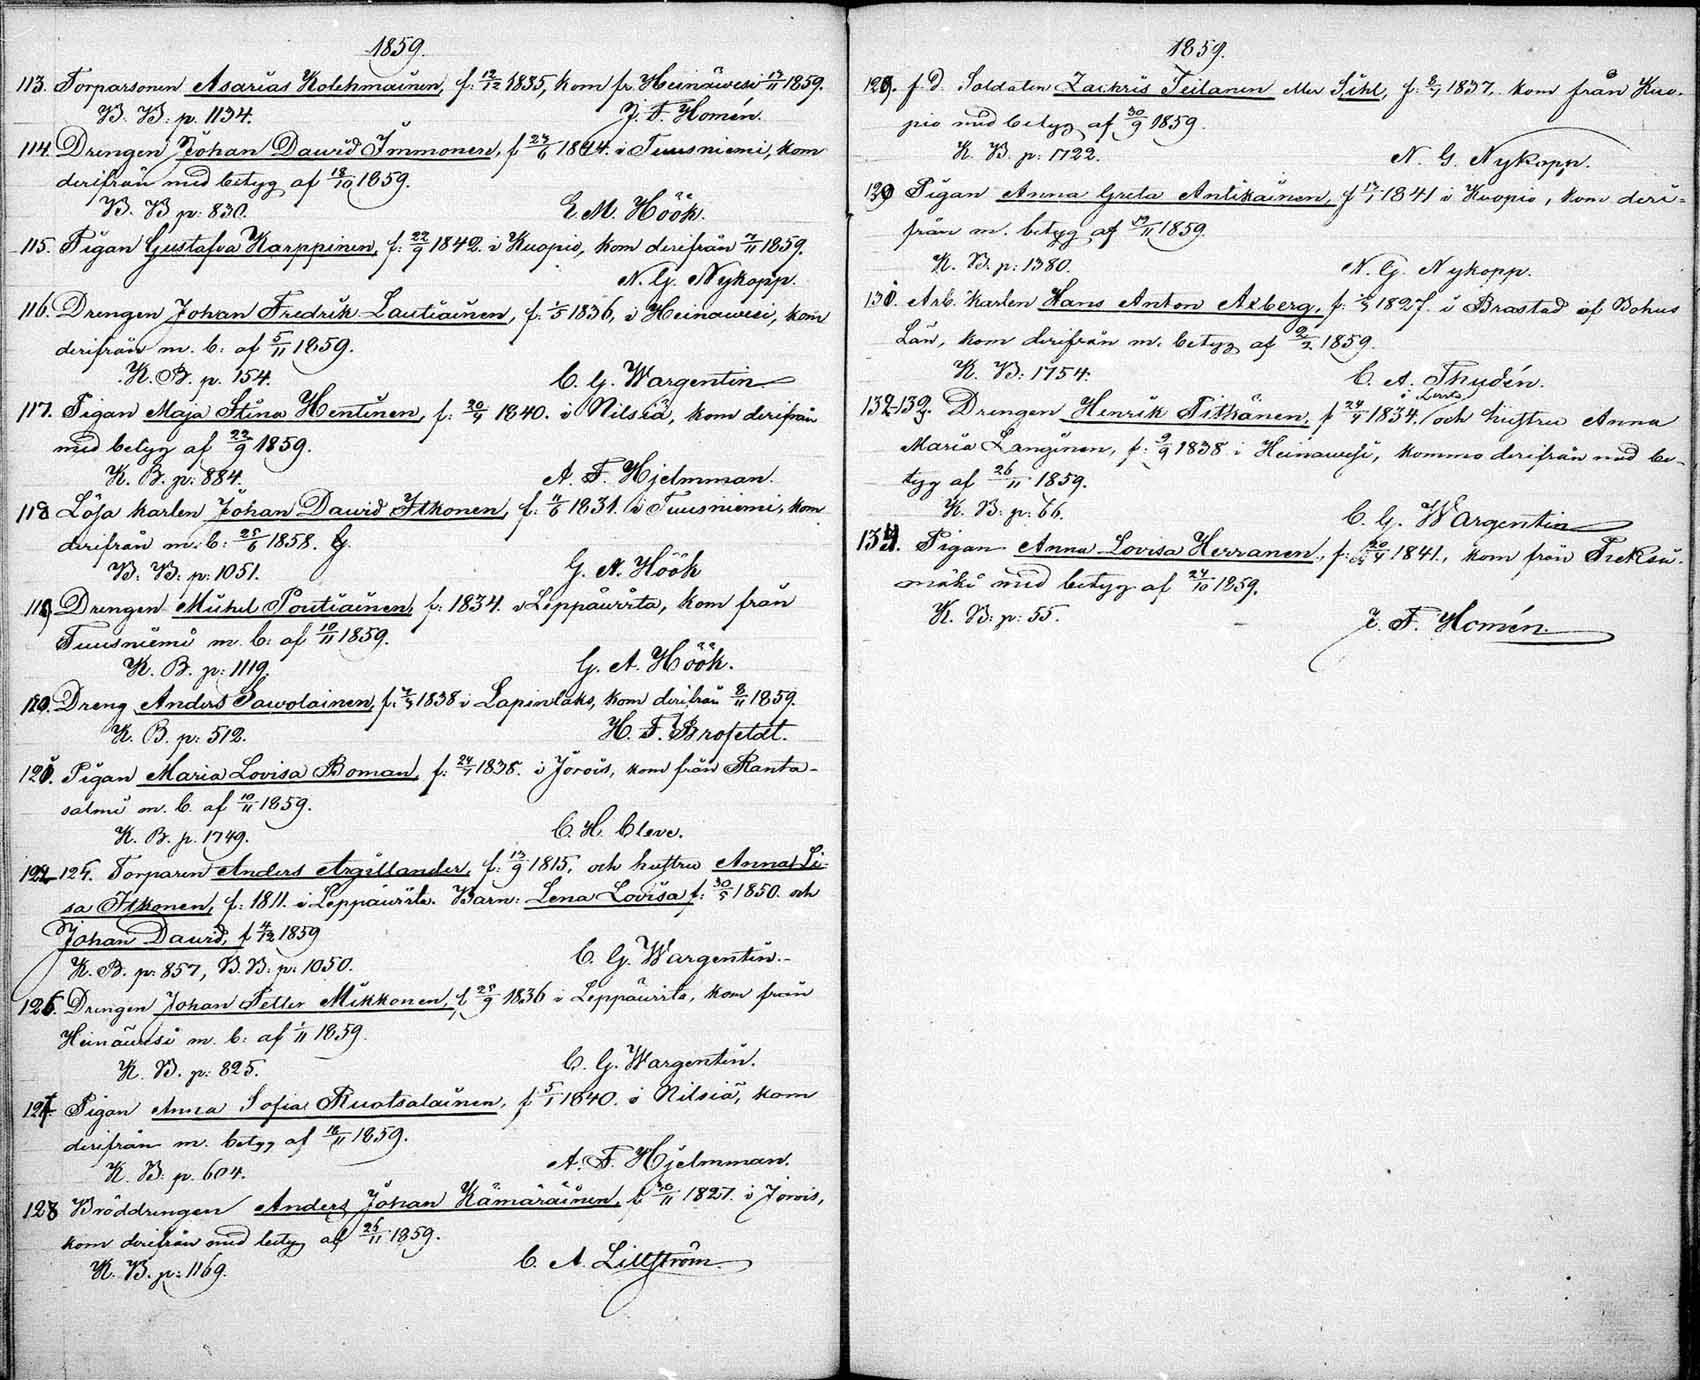 1859.
113. Torparsonen Asarias Kolehmainen, f. 12/12 1835, kom fr. Heinäwesi 13/11 1859.
B. B: p. 1134. J. F. Homén.
114. Drengen Johan Dawid Immonen, f 27/6 1844. i Tuusniemi, kom
derifrån med betyg af 18/10 1859.
B. B p: 830. G. M. Höök.
115. Pigan Gustafva Karppinen, f: 22/9 1842. i Kuopio, kom derifrån 7/11 1859.
N. G. Nykopp.
116. Drengen Johan Fredrik Lautiainen, f: 1/5 1836, i Heinawesi, kom
derifrån m. b: af 5/11 1859.
K. B. p. 154. C. G. Wargentin
117. Pigan Maja Stina Hentinen, f: 20/4 1840. i Nilsiä, kom derifrån
med betyg af 22/9 1859.
K. B. p: 884. A. F. Hjelmman.
118 Lösa karlen Johan Dawid Itkonen, f: 11/6 1831. i Tuusniemi, kom
derifrån m. b: 25/6 1858. G.
B: B: p: 1051. G. A. Höök
119 Drengen Mickel Poutiainen, f: 1834. i Leppäwirta, kom från
Tuusniemi m. b: af 10/11 1859.
K. B. p: 1119. G. A. Höök.
120. Dreng Anders Sawolainen, f: 7/3 1838 i Lapinlaks, kom derifrån 8/11 1859.
K. B. p: 512. H. F. Brofeldt.
121. Pigan Maria Lovisa Boman, f: 24/7 1838. i Jorois, kom från Ranta-
salmi m. b. af 10/11 1859.
K. B. p. 1749. C. H. Cleve.
122-125. Torparen Anders Argillander, f: 13/9 1815, och hustru Anna Li-
sa Itkonen, f: 1811. i Leppäwirta. Barn: Lena Lovisa f: 30/5 1850. och
Johan Dawid, f 4/12 1859
K. B. p: 857, B. B: p: 1050. C. G. Wargentin.
126. Drengen Johan Petter Mikkonen, f 28/9 1836 i Leppäwirta, kom från
Heinäwesi m. b: af 1/11 1859.
K. B. p: 825. C. G. Wargentin.
127 Pigan Anna Sofia Ruotsalainen, f 5/1 1840. i Nilsiä, kom
derifrån m. betyg af 18/11 1859.
K. B: p. 604. A. F. Hjelmman.
128 Bröddrengen Anders Johan Kämäräinen, f 30/11 1827. i Jorois,
kom derifrån med betyg af 25/11 1859.
K. B. p: 1169. C. A. Lillström
1859.
129. f. d. Soldaten Zachris Teilanen eller Sihl, f: 8/7 1837. kom från Kuo-
pio med betyg af 30/9 1859.
K. B. p: 1722. N. G. Nykopp.
130 Pigan Anna Greta Antikainen, f 13/1 1841 i Kuopio, kom deri-
från m. betyg af 19/11 1859.
K. B. p: 1380. N. G. Nykopp.
131. Arb. karlen Hans Anton Axberg, f: 1827. i Brastad af Bohus
Län, kom derifrån m. betyg af 2/2 1859.
K. B: 1754. C. A. Thudén.
132-133. Drengen Henrik Pitkänen, f 24/4 1834. och hustru Anna
Maria Langinen, f: 9/9 1838 i Heinawesi, kommo derifrån med be-
tyg af 26/11 1859.
K. B: p: 66. C. G. Wargentin
134. Pigan Anna Lovisa Herranen, f: 20/4 1841., kom från Pieksä-
mäki med betyg af 24/10 1859.
K. B: p: 55. J. F. Homén.